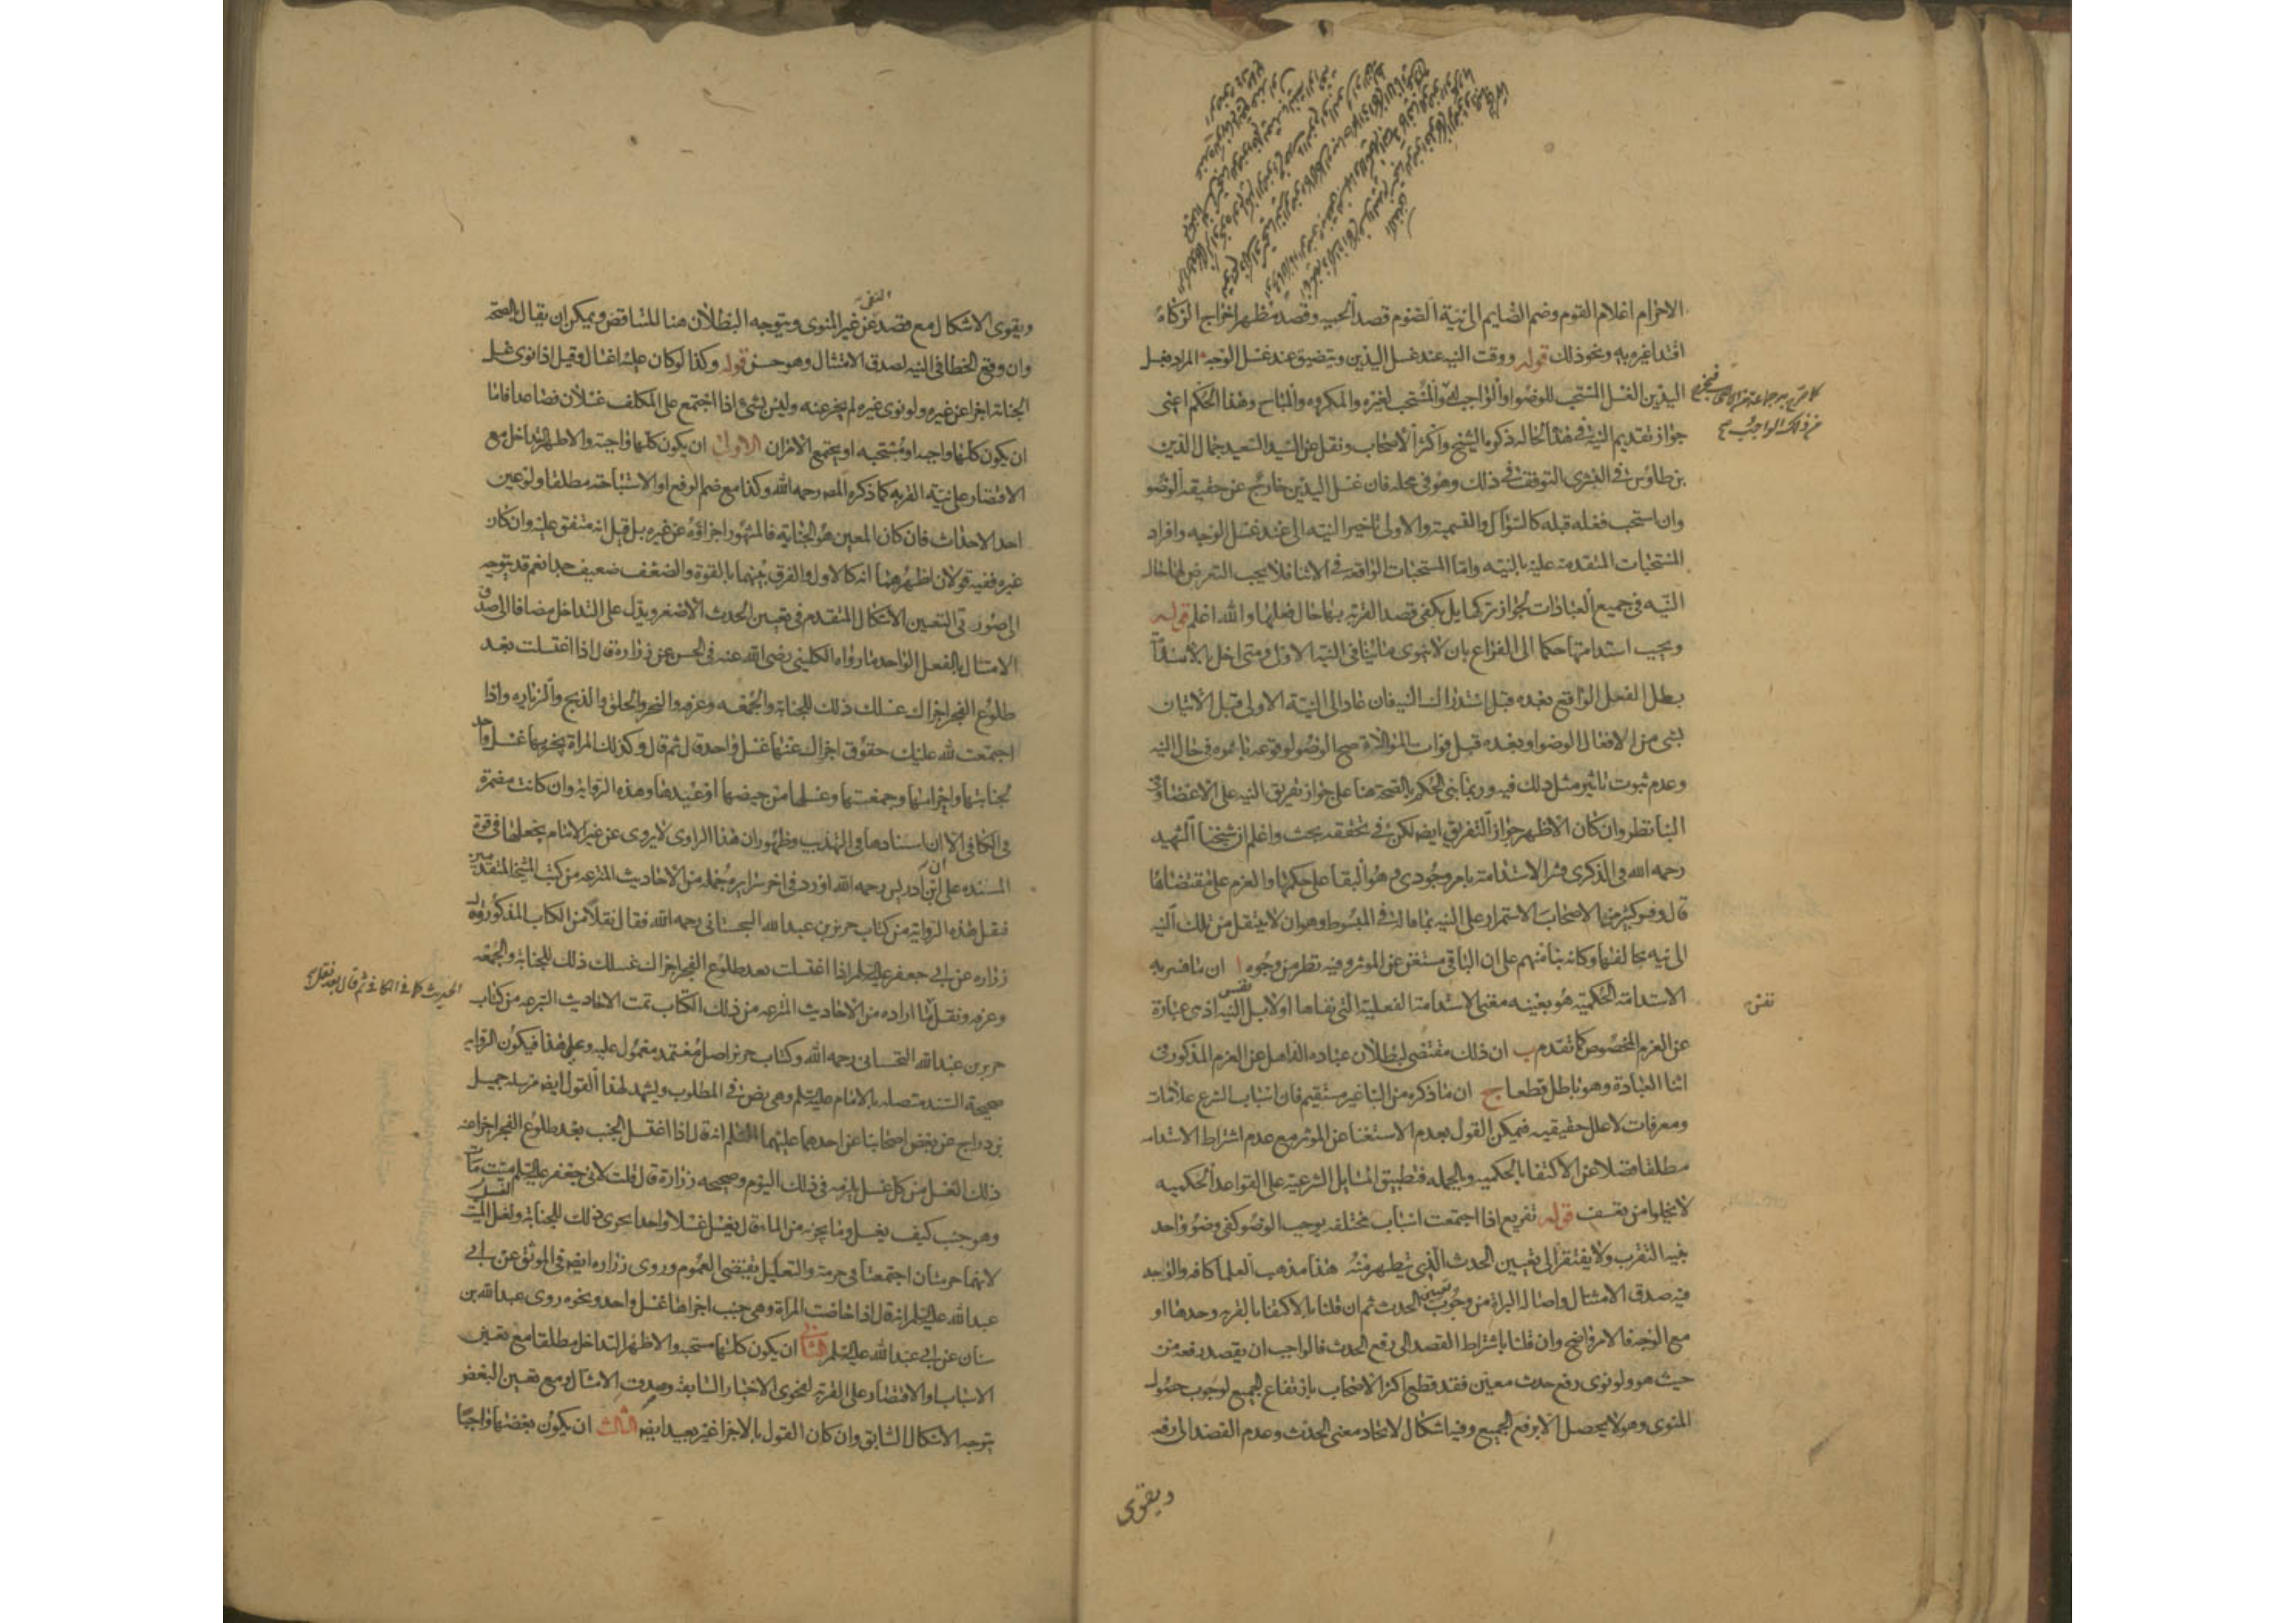 الاحرام اعلام القوم وضم الصايم الى نية الصوم قصد الحميه وقصد مظهر اخراج الزكاة
اقتدا غيره به ونحو ذلك قوله ووقت النيه عند غسل اليدين ويتضيق عند غسل الوجه المراد بغسل
اليدين الغسل المستحب للوضوا والواجب له والمستحب لغيره والمكروه والمباح وهذا الحكم اعنى
جواز تقديم النية في هذه الحاله ذكره الشيخ واكثر الاصحاب ونقل عن السيد السعيد جمال الدين
بن طاوس في البشرى التوقف في ذلك وهو في محله فان غسل اليدين خارج عن حقيقه الوضو
وان استحب فعله قبله كالسواك والتسمية والاولى تاخير النيه الى عند غسل الوجه وافراد
المستحبات المتقدمة عليه بالنيه واما المستحبات الواقعه في الاثنا فلا يجب التعرض لها حال
النيه في جميع العبادات لجواز تركها بل يكفى قصد القربه بها حال فعلها والله اعلم قوله
ويجب استدامتها حكما الى الفراغ بان لا ينوى ما ينافى النيه الاولى ومتى اخل بالاستدامة
بطل الفعل الواقع بعده قبل استدراك النيه فان عاد الى النية الاولى قبل الاتيان
بشى من الافعال الوضو او بعده قبل فوات الموالاة صح الوضو لوقوعه باسره في حال النيه
وعدم ثبوت تاثير مثل ذلك فيه وربما بنى الحكم بالصحة هنا على جواز تفريق النيه على الاعضا وفى
البنا نظر وان كان الاظهر جواز التفريق ايضا لكن في تحققه بحث واعلم ان شيخنا الشهيد
رحمه الله في الذكرى فسر الاستدامة بامر وجودى وهو البقا على حكمها والعزم على مقتضاها
قال وفسر كثير من الاصحاب الاستمرار على النيه بما قاله في المبسوط وهو ان لا ينتقل من تلك النيه
الى نيه تخالفها وكانه بنا منهم على ان الباقى مستغن عن الموثر وفيه نظر من وجوه ا ان ما فسر به
الاستدامة الحكمية هو بعينه معنى الاستدامة الفعلية التى نفاها اولا بل نفس النيه اذ هى عبارة
عن العزم المخصوص كما تقدم ب ان ذلك مقتضى لبطلان عباده الذاهل عن العزم المذكور في
اثنا العبادة وهو باطل قطعا ج ان ما ذكره من البنا غير مستقيم فان اسباب الشرع علامات
ومعرفات لا علل حقيقيه فيمكن القول بعدم الاستغنا عن الموثر مع عدم اشتراط الاستدامه
مطلقا فضلا عن الاكتفا بالحكميه وبالجمله فتطبيق المسايل الشرعية على القواعد الحكميه
لا يخلوا من تعسف قوله تفريع اذا اجتمعت اسباب مختلفه يوجب الوضو كفى وضوء واحد
بنيه التقرب ولا يفتقر الى تعيين الحدث الذى يتطهر منه هذا مذهب العلما كافه والوجه
فيه صدق الامتثال واصاله البراة من وجوب تعيين الحدث ثم ان قلنا بالاكتفا بالقربه وحدها او
مع الوجه فالامر واضح وان قلنا باشتراط القصد الى رفع الحدث فالواجب ان يقصد رفعه من
حيث هو ولو نوى رفع حدث معين فقد قطع اكثر الاصحاب بارتفاع الجميع لوجوب حصول
المنوى وهو لا يحصل الا برفع الجميع وفيه اشكال لاتحاد معنى الحدث وعدم القصد الى رفعه
ويقوى
كما صرح به جماعة من الاصحاب
نفس
ويقوى الاشكال مع قصد النفى عن غير المنوى ويتوجه البطلان هنا للتناقض ويمكن ان يقال بالصحة
وان وقع الخطا في النيه لصدق الامتثال وهو حسن قوله وكذا لو كان عليه اغتسال وقيل اذا نوى غسل
الجنابة اجزا عن غيره ولو نوى غيره لم يجز عنه وليس بشئ اذا اجتمع على المكلف غسلان فصاعدا فاما
ان يكون كلها واجبه او مستحبه او يجتمع الامران الاول ان يكون كلها واجبة والاظهر التداخل مع
الاقتصار على نية القربه كما ذكره المص رحمه الله وكذا مع ضم الرفع او الاستباحة مطلقا ولو عين
احد الاحداث فان كان المعين هو الجنابة فالمشهور اجزاؤه عن غيره بل قيل انه متفق عليه وان كان
غيره ففيه قولان اظهرهما انه كالاول والفرق بينهما بالقوة والضعف ضعيف جدا نعم قد يتوجه
الى صورتى التعيين الاشكال المتقدم في تعيين الحدث الاصغر ويدل على التداخل مضافا الى صدق
الامتثال بالفعل الواحد ما رواه الكلينى رضى الله عنه في الحسن عن زرارة قال اذا اغتسلت بعد
طلوع الفجر اجزاك غسلك ذلك للجنابة والجمعه وعرفه والنحر والحلق والذبح والزياره واذا
اجتمعت لله عليك حقوق اجزاك عنها غسل واحد قال ثم قال وكذلك المراة يجزيها غسل واحد
لجنابتها واحرامها وجمعتها وغسلها من حيضها او عيدها وهذه الرواية وان كانت مضمرة
في الكافى الا ان اسنادها في التهذيب وظهور ان هذا الراوى لا يروى عن غير الامام يجعلها في قوة
المسنده على ان ابن ادريس رحمه الله اورد في اخر سرايره جمله من الاحاديث المنتزعه من كتب المشيخة المتقدمين
فنقل هذه الرواية من كتاب حريز بن عبد الله السجستانى رحمه الله فقال نقلا من الكتاب المذكور وقال
زراره عن ابى جعفر عليه السلم اذا اغتسلت بعد طلوع الفجر اجزاك غسلك ذلك للجنابة والجمعه
وعرفه ونقل ما اراده من الاحاديث المنتزعه من ذلك الكتاب تمت الاحاديث المنتزعه من كتاب
حريز بن عبد الله السجستانى رحمه الله وكتاب حريز اصل معتمد معمول عليه وعلى هذا فيكون الروايه
صحيحة السند متصله بالامام عليه السلم وهى نص في المطلوب ويشهد لهذا القول ايضا مرسله جميل
بن دراج عن بعض اصحابنا عن احدهما عليهما السلم انه قال اذا اغتسل الجنب بعد طلوع الفجر اجزا عنه
ذلك الغسل من كل غسل يلزمه في ذلك اليوم وصحيحه زرارة قال قلت لابى جعفر عليه السلم ميت مات
وهو جنب كيف يغسل وما يجزيه من الماء قال يغسل غسلا واحدا يجزى ذلك للجنابة ولغسل الميت
لانهما حرمتان اجتمعتا في حرمة والتعليل يقتضى العموم وروى زراره ايضا في الموثق عن ابى
عبد الله عليه السلم انه قال اذا حاضت المراة وهى جنب اجزاها غسل واحد ونحوه روى عبد الله بن
سنان عن ابى عبد الله عليه السلم الثانى ان يكون كلها مستحبه والاظهر التداخل مطلقا مع تعيين
الاسباب او الاقتصار على القربه لفحوى الاخبار السابقه وصدق الامتثال ومع تعيين البعض
يتوجه الاشكال السابق وان كان القول بالاجزا غير بعيد ايضا الثالث ان يكون بعضها واجبا
الحديث كما في الكافى ثم قال بعد نقل